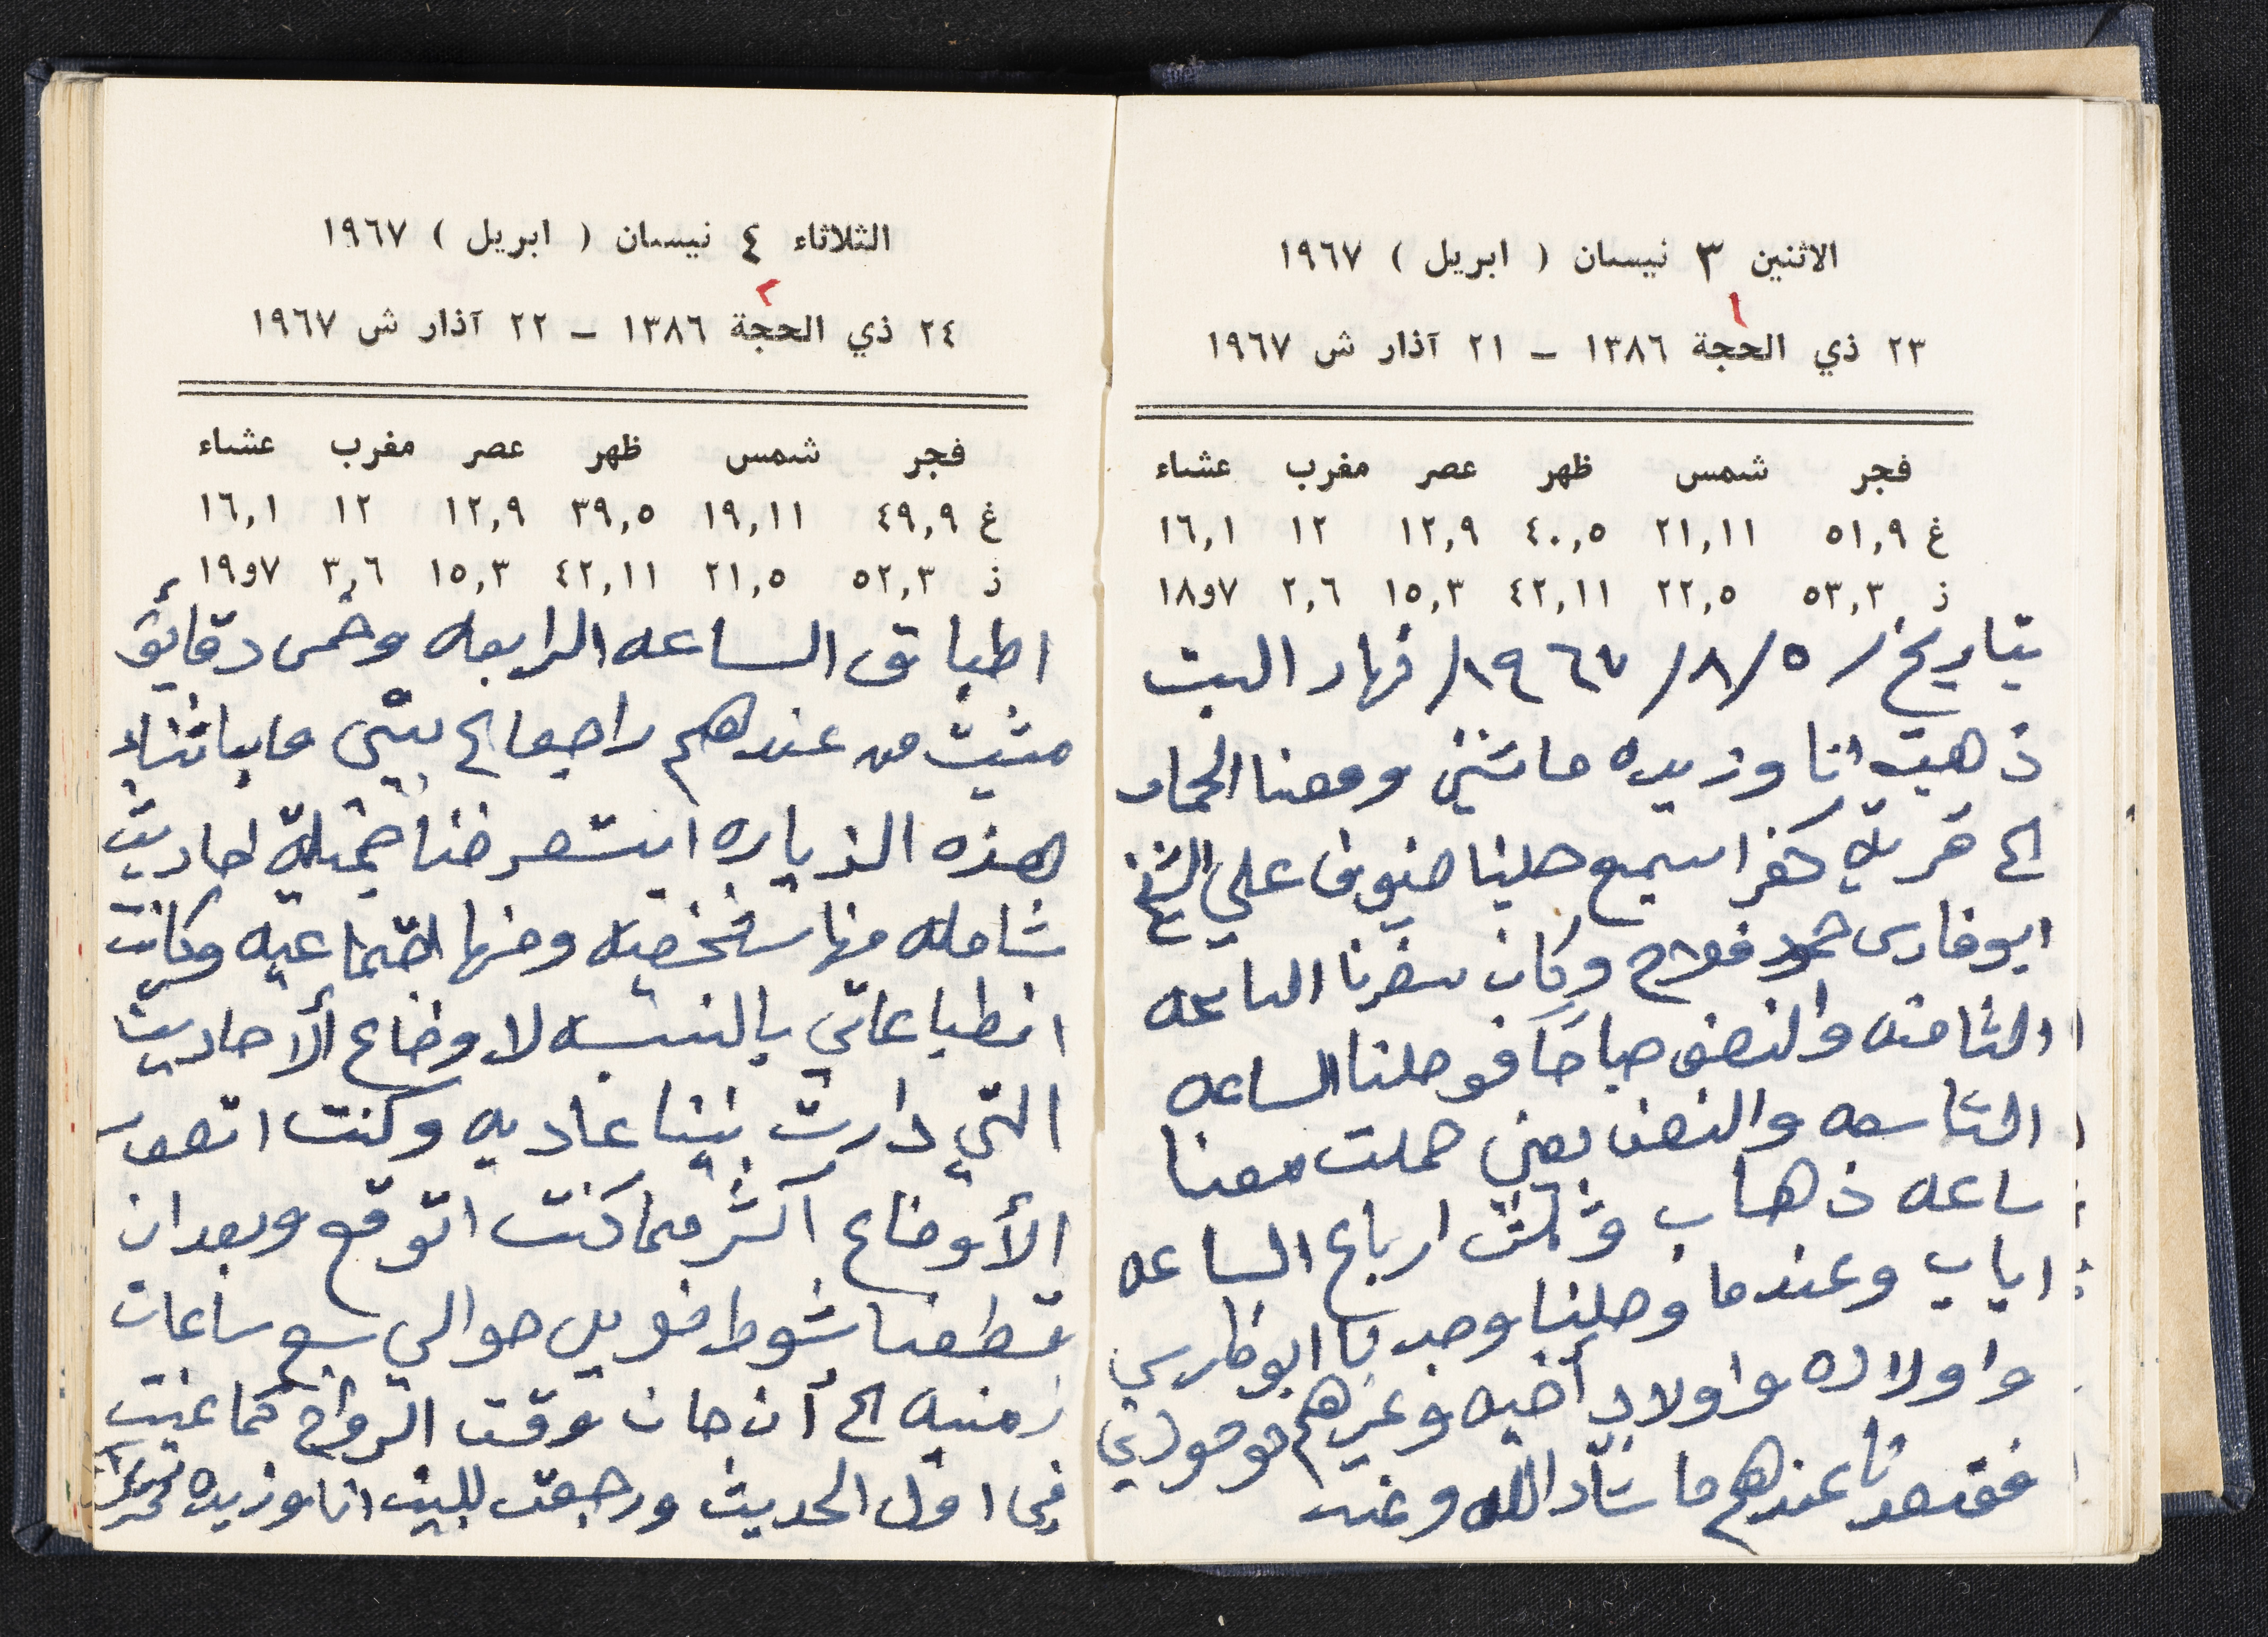 الاثنين ٣ نيسان ( ابريل ) ١٩٦٧
١
٢٣ ذي الحجة ١٣٨٦ – ٢١ آذار ش ١٩٦٧
فجر شمس ظهر عصر مغرب عشاء
غ ٥١,٩ ٢١,١١ ٤٠,٥ ١٢,٩ ١٢ ١٦,١
ز ٥٣,٣ ٢٢,٥ ٤٢,١١ ١٥,٣ ٢,٦ ١٨و٧
بتاريخ / ٥ / ٨ / ١٩٦٧ / نهار السبت
ذهبت انا وزيده ماشين ومعنا الحمار
الى قرية كفر اسميع حلينا ضيوف على الشيخ
ابو فارس حمود فلاح وكان سفرنا الساعه
الثامنه والنصف صباحاً فوصلنا الساعه
التاسعه والنصف يعني حملت معنا
ساعه ذهاب وثلث ارباع الساعه
اياب وعندما وصلنا وجدنا ابو فارس
واولاده واولاد أخيه وغيرهم موجودين
فقعدنا عندهم ما شاء الله وعند
الثلاثاء ٤ نيسان ( ابريل ) ١٩٦٧
٢
٢٤ ذي الحجة ١٣٨٦ – ٢٢ آذار ش ١٩٦٧
فجر شمس ظهر عصر مغرب عشاء
غ ٤٩,٩ ١٩,١١ ٣٩,٥ ١٢,٩ ١٢ ١٦,١
ز ٥٢,٣ ٢١,٥ ٤٢,١١ ١٥,٣ ٣,٦ ١٩و٧
اطباق الساعه الرابعه وخمس دقايق
مشيت من عندهم راجعا الى بيتي اما باثناء
هذه الزياره استعرضنا جملة احاديث
شامله منها شخصيه ومنها اجتماعيه وكانت
انطباعاتي بالنسبه لاوضاع ألاحاديث
التي دارت بيننا عاديه وكنت اتصور
الأوضاع اكثر مما كنت اتوقع وبعد ان
قطعنا شوط طويل حوالي سبع ساعات
زمنيه الى أن حان وقت الرواح كما عنيت
في اول الحديث ورجعت للبيت انا وزيده